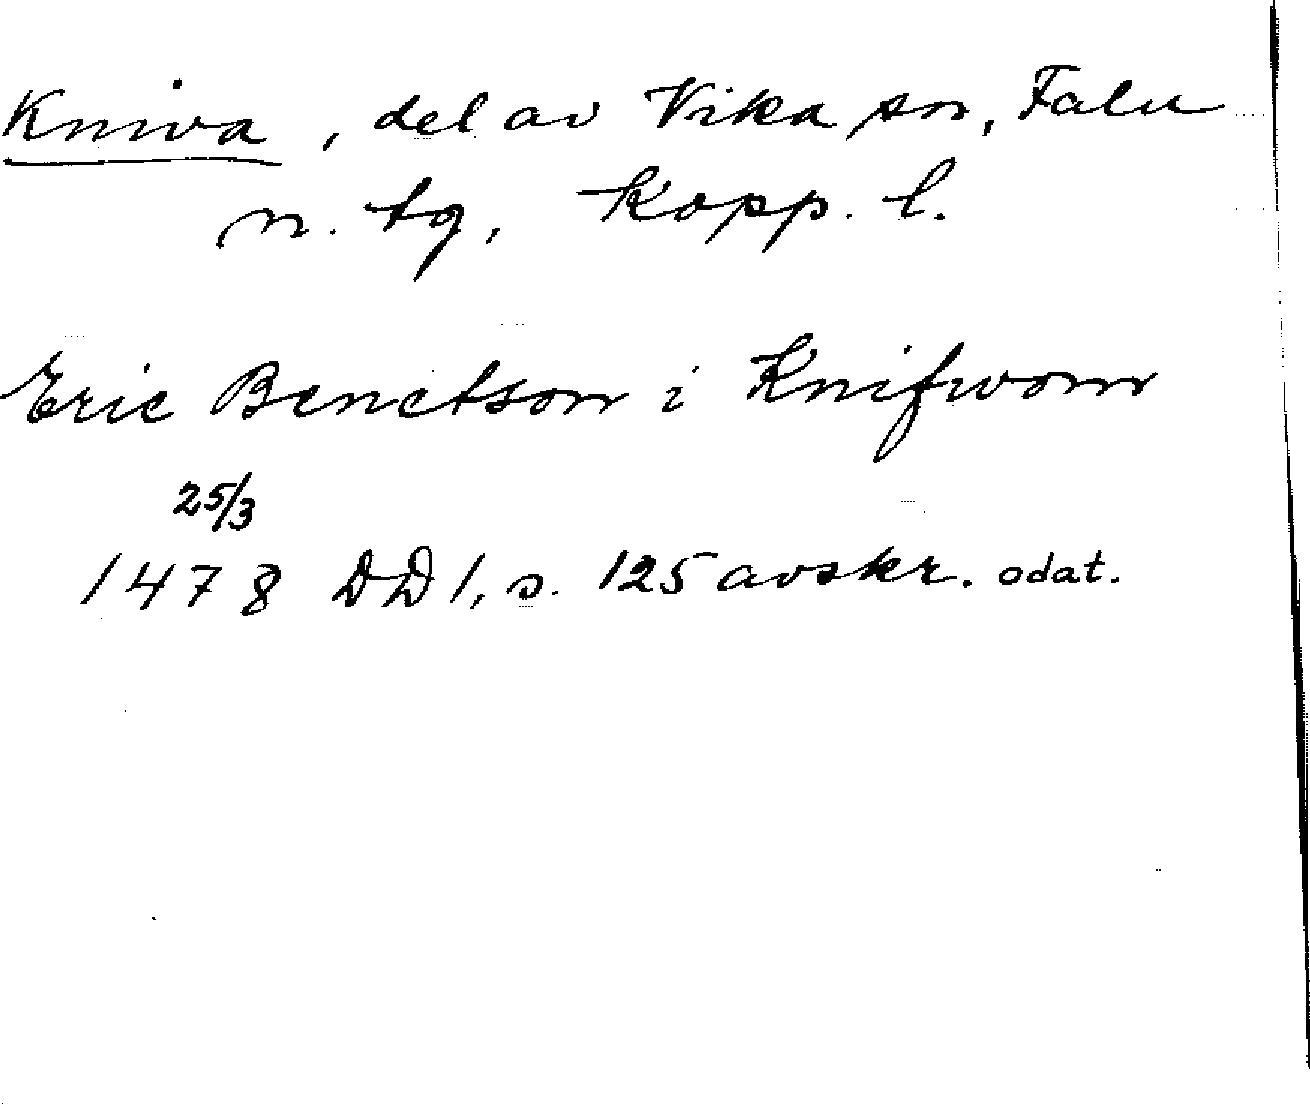 Kniva, del av Vika sn, Falu
n. tg, Kopp. l.
Eric Benctson i Knifwom
25/3
1478 DD1, s. 125 avskr. odat.